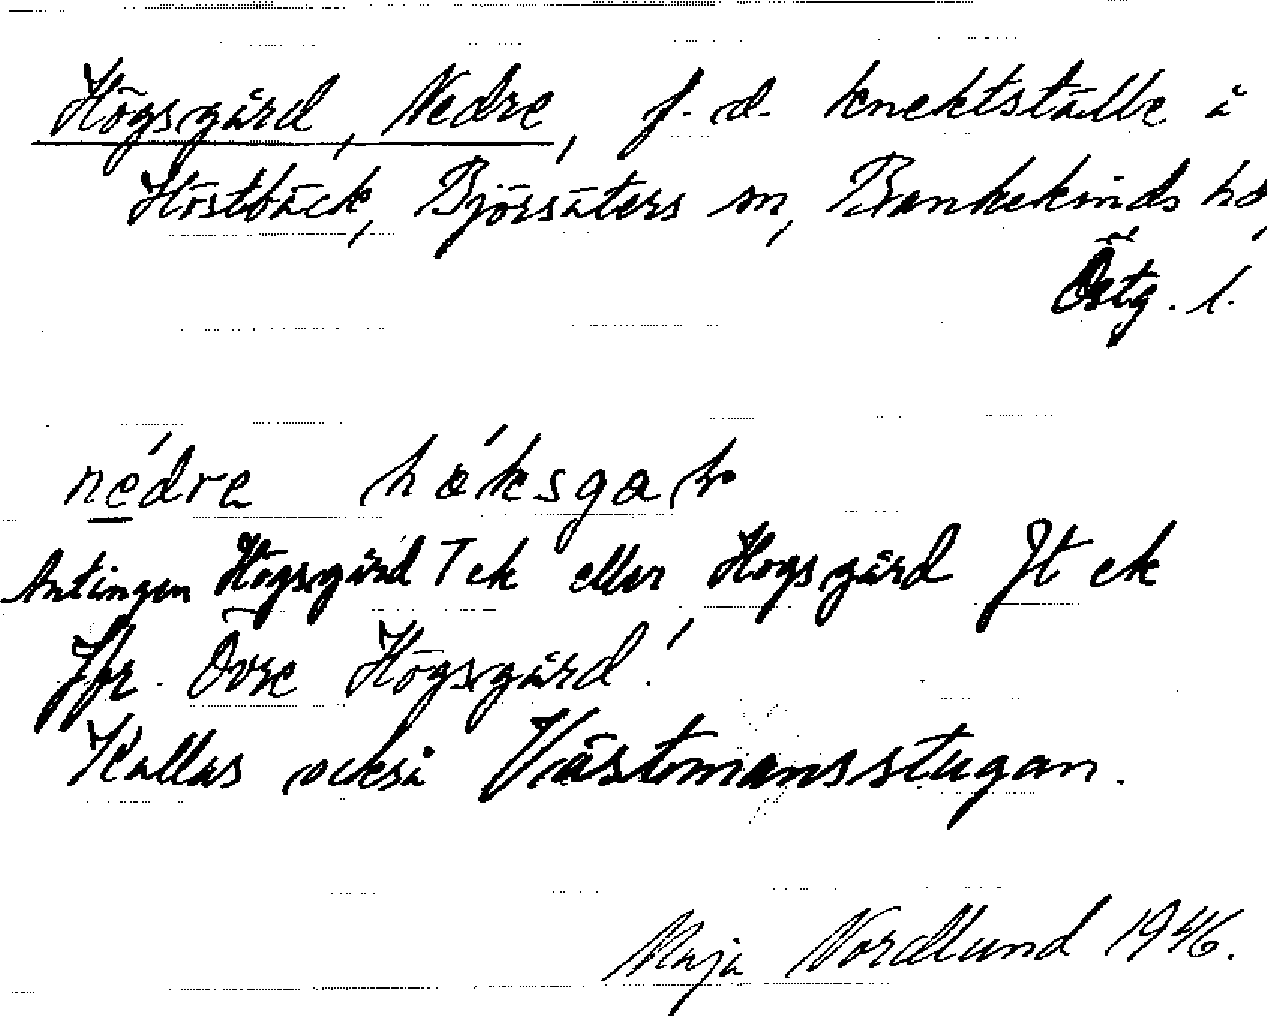 Högsgård, Nedre, f. d. knektställe å
Höstbäck, Björsäters sn, Bankekinds hd,
Östg. l.
nédre hǿksgaḷ
Antingen Högsgård T ek eller Högsgård Jt ek
Jfr. Övre Högsgård!
Kallas också Västomansstugan.
Maja Nordlund 1946.